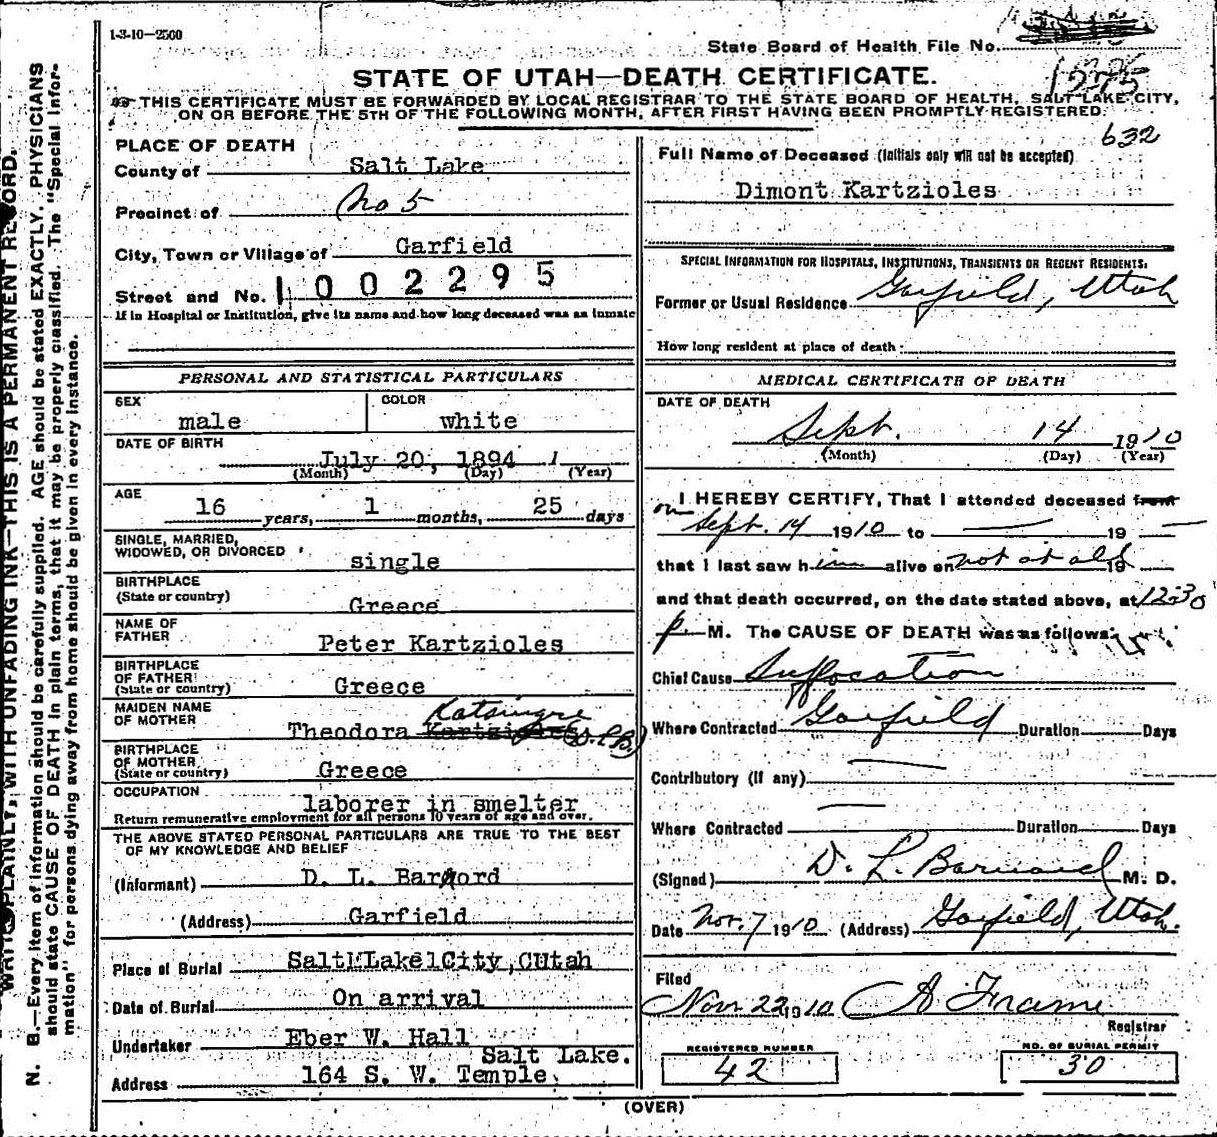 1-3-10-2500
State Board of Health File No.
STATE OF UTAH—DEATH CERTIFICATE.
THIS CERTIFICATE MUST BE FORWARDED BY LOCAL REGISTRAR TO THE STATE BOARD OF HEALTH, SALT LAKE CITY,
ON OR BEFORE THE 5TH OF THE FOLLOWING MONTH, AFTER FIRST HAVING BEEN PROMPTLY REGISTERED.
632
PLACE OF DEATH
County of Salt Lake
Precinct of No 5
City, Town or Village of Garfield
Street and No. 1002295
If in Hospital or Institution, give its name and how long deceased was an inmate
Full Name of Deceased (Initials only will not be accepted)
Dimont Kartzioles
SPECIAL INFORMATION FOR HOSPITALS, INSTITUTIONS, TRANSIENTS OR RECENT RESIDENTS:
Former or Usual Residence Garfield, Utah
How long resident at place of death:
PERSONAL AND STATISTICAL PARTICULARS
SEX male COLOR white
DATE OF BIRTH
July 20, 1894
(Month) (Day) (Year)
AGE
16 years, 1 months, 25 days
SINGLE, MARRIED,
WIDOWED, OR DIVORCED single
BIRTHPLACE
(State or country) Greece
NAME OF
FATHER Peter Kartzioles
BIRTHPLACE
OF FATHER
(State or country) Greece
MAIDEN NAME
OF MOTHER Theodora
BIRTHPLACE
OF MOTHER
(State or country) Greece
OCCUPATION laborer in smelter
Return remunerative employment for all persons 10 years of age and over.
THE ABOVE STATED PERSONAL PARTICULARS ARE TRUE TO THE BEST
OF MY KNOWLEDGE AND BELIEF
(Informant) D. L. Barnord
(Address) Garfield
Place of Burial Salt Lake City, Utah
Date of Burial On arrival
Undertaker Eber W. Hall
Salt Lake.
Address 164 S. W. Temple
MEDICAL CERTIFICATE OF DEATH
DATE OF DEATH
Sept. 14 1910
(Month) (Day) (Year)
I HEREBY CERTIFY, That I attended deceased from
on Sept. 14 1910 to — 19 —
that I last saw him alive on not at all 19
and that death occurred, on the date stated above, at 12:30
p M. The CAUSE OF DEATH was as follows:
Chief Cause Suffocation
Where Contracted Garfield Duration Days
Contributory (If any) —
Where Contracted — Duration Days
(Signed) D. L. Barnard M. D.
Date Nov. 7 1910 (Address) Garfield, Utah.
Filed
Nov 22 1910 A Frame
Registrar
REGISTERED NUMBER
42
NO. OF BURIAL PERMIT
30
(OVER)
WRITE PLAINLY, WITH UNFADING INK—THIS IS A PERMANENT RECORD.
N. B.—Every item of information should be carefully supplied. AGE should be stated EXACTLY. PHYSICIANS
should state CAUSE OF DEATH in plain terms, that it may be properly classified. The "Special Infor-
mation" for persons dying away from home should be given in every instance.